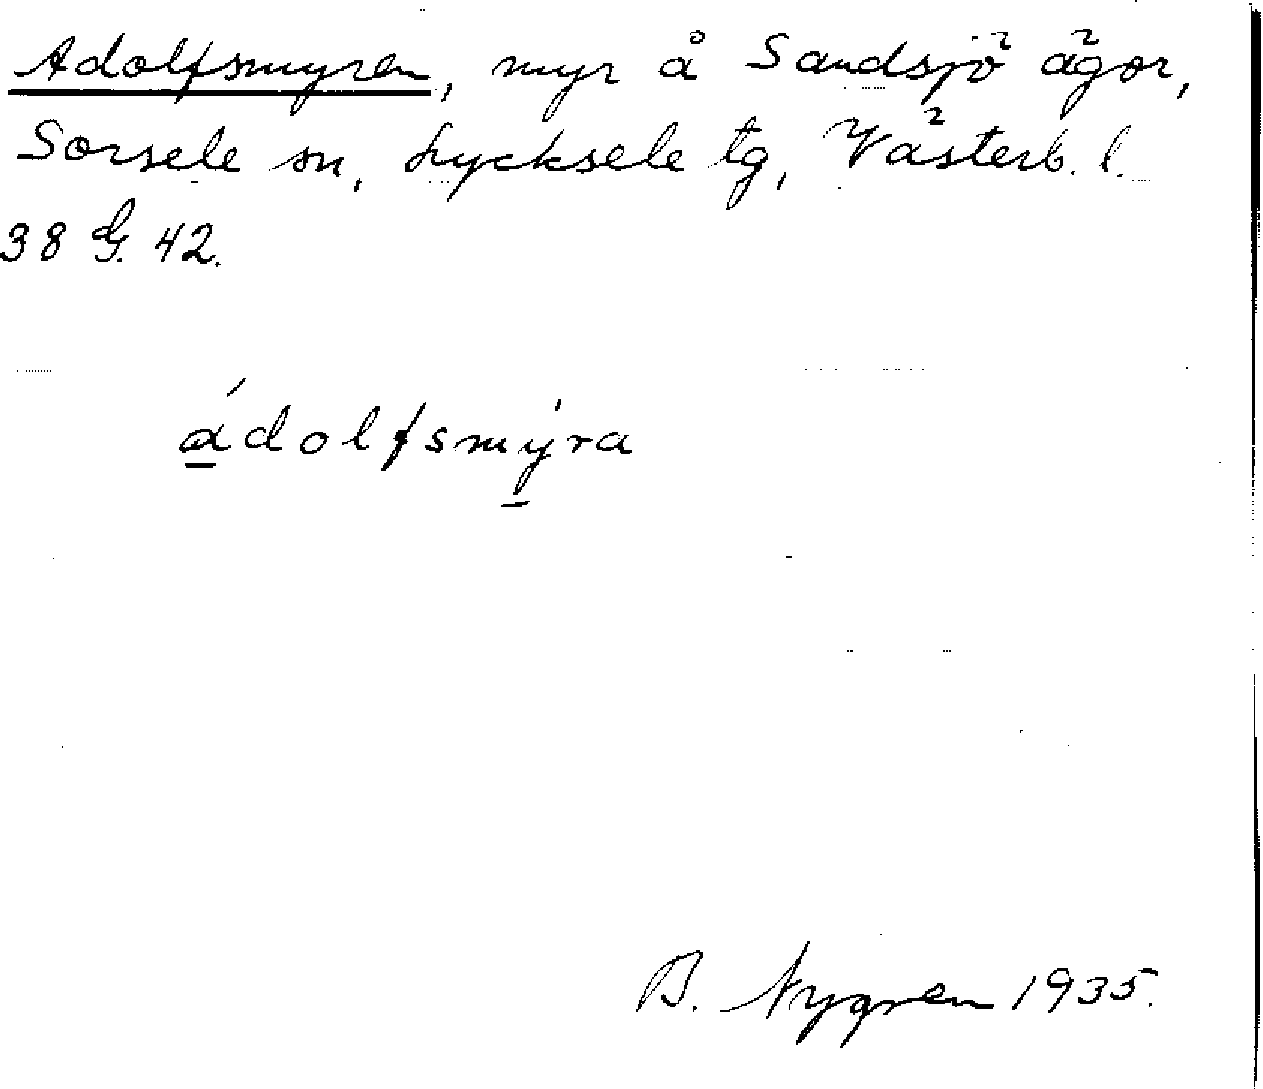 Adolfsmyren, myr å Sandsjö ägor,
Sorsele sn, Lycksele tg, Västerb. l.
38 G. 42.
ádolfsmýra
B. Nygren 1935.